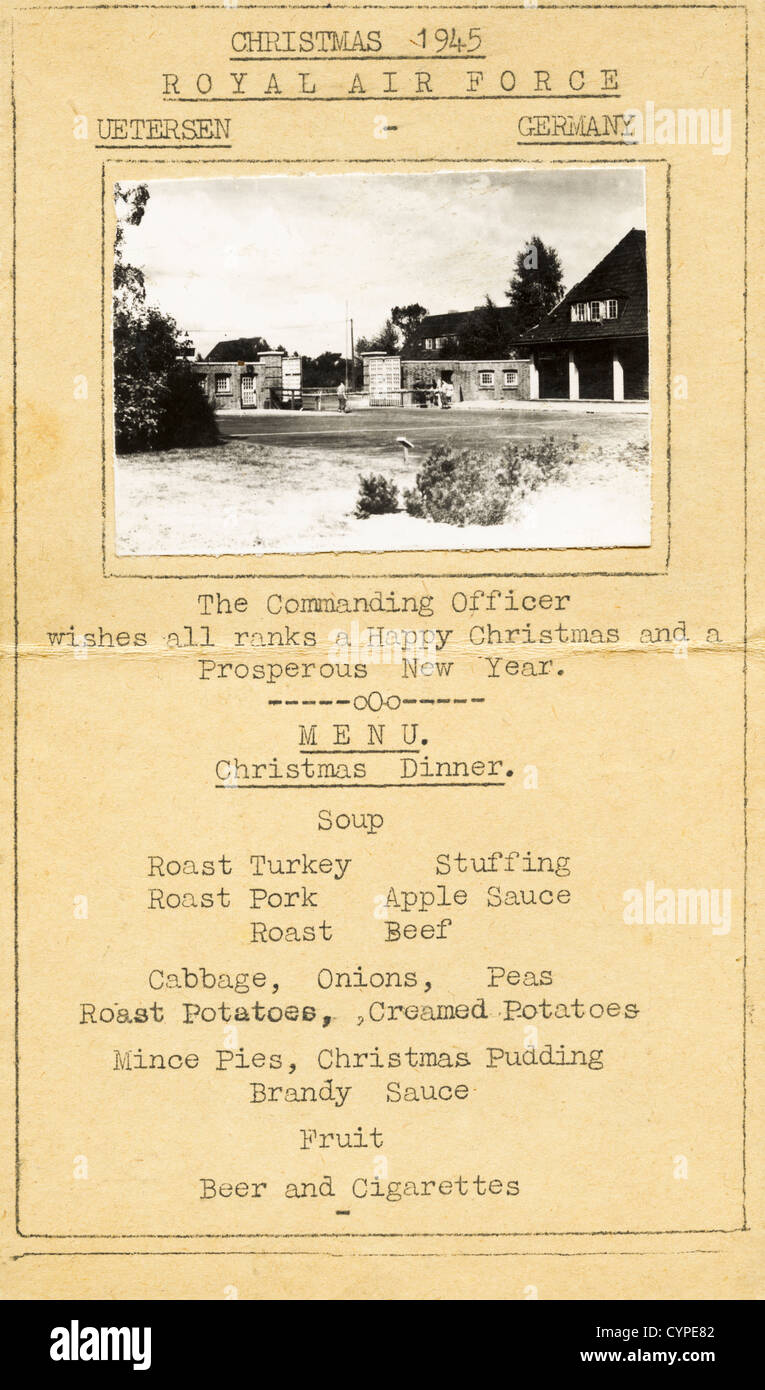 CHRISTMAS 1945
ROYAL AIR FORCE
UETERSEN - GERMANY
The Commanding Officer
wishes all ranks a Happy Christmas and a
Prosperous New Year.
------oOo------
MENU.
Christmas Dinner.
Soup
Roast Turkey Stuffing
Roast Pork Apple Sauce
Roast Beef
Cabbage, Onions, Peas
Roast Potatoes, ,Creamed Potatoes
Mince Pies, Christmas Pudding
Brandy Sauce
Fruit
Beer and Cigarettes
-
alamy
a
alamy
Image ID: CYPE82
www.alamy.com